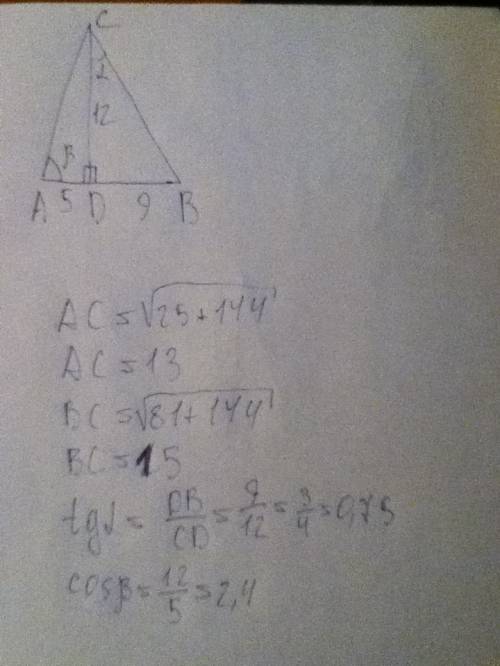 C
1
12
β
A 5 D 9 B
AC = √25+144
AC = 13
BC = √81+144
BC = 15
tgα = DB/CD = 9/12 = 3/4 = 0,75
cosβ = 12/5 = 2,4